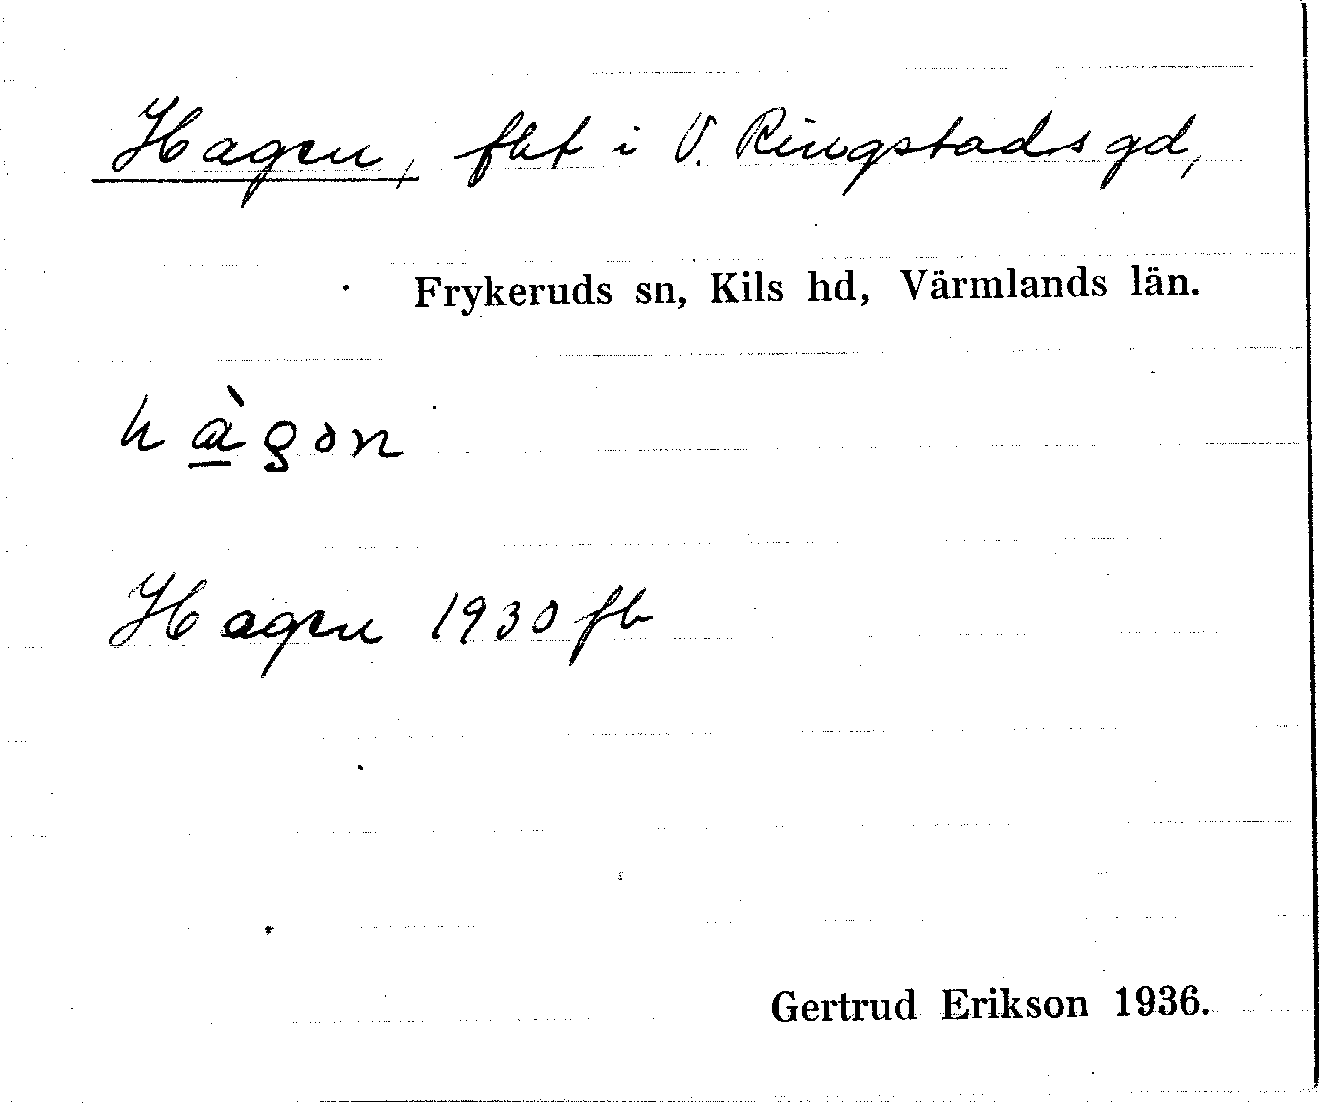 Hagen, fbt i V. Ringstads gd,
Frykeruds sn, Kils hd, Värmlands län.
hà̱gơn
Hagen 1930 fb
Gertrud Erikson 1936.